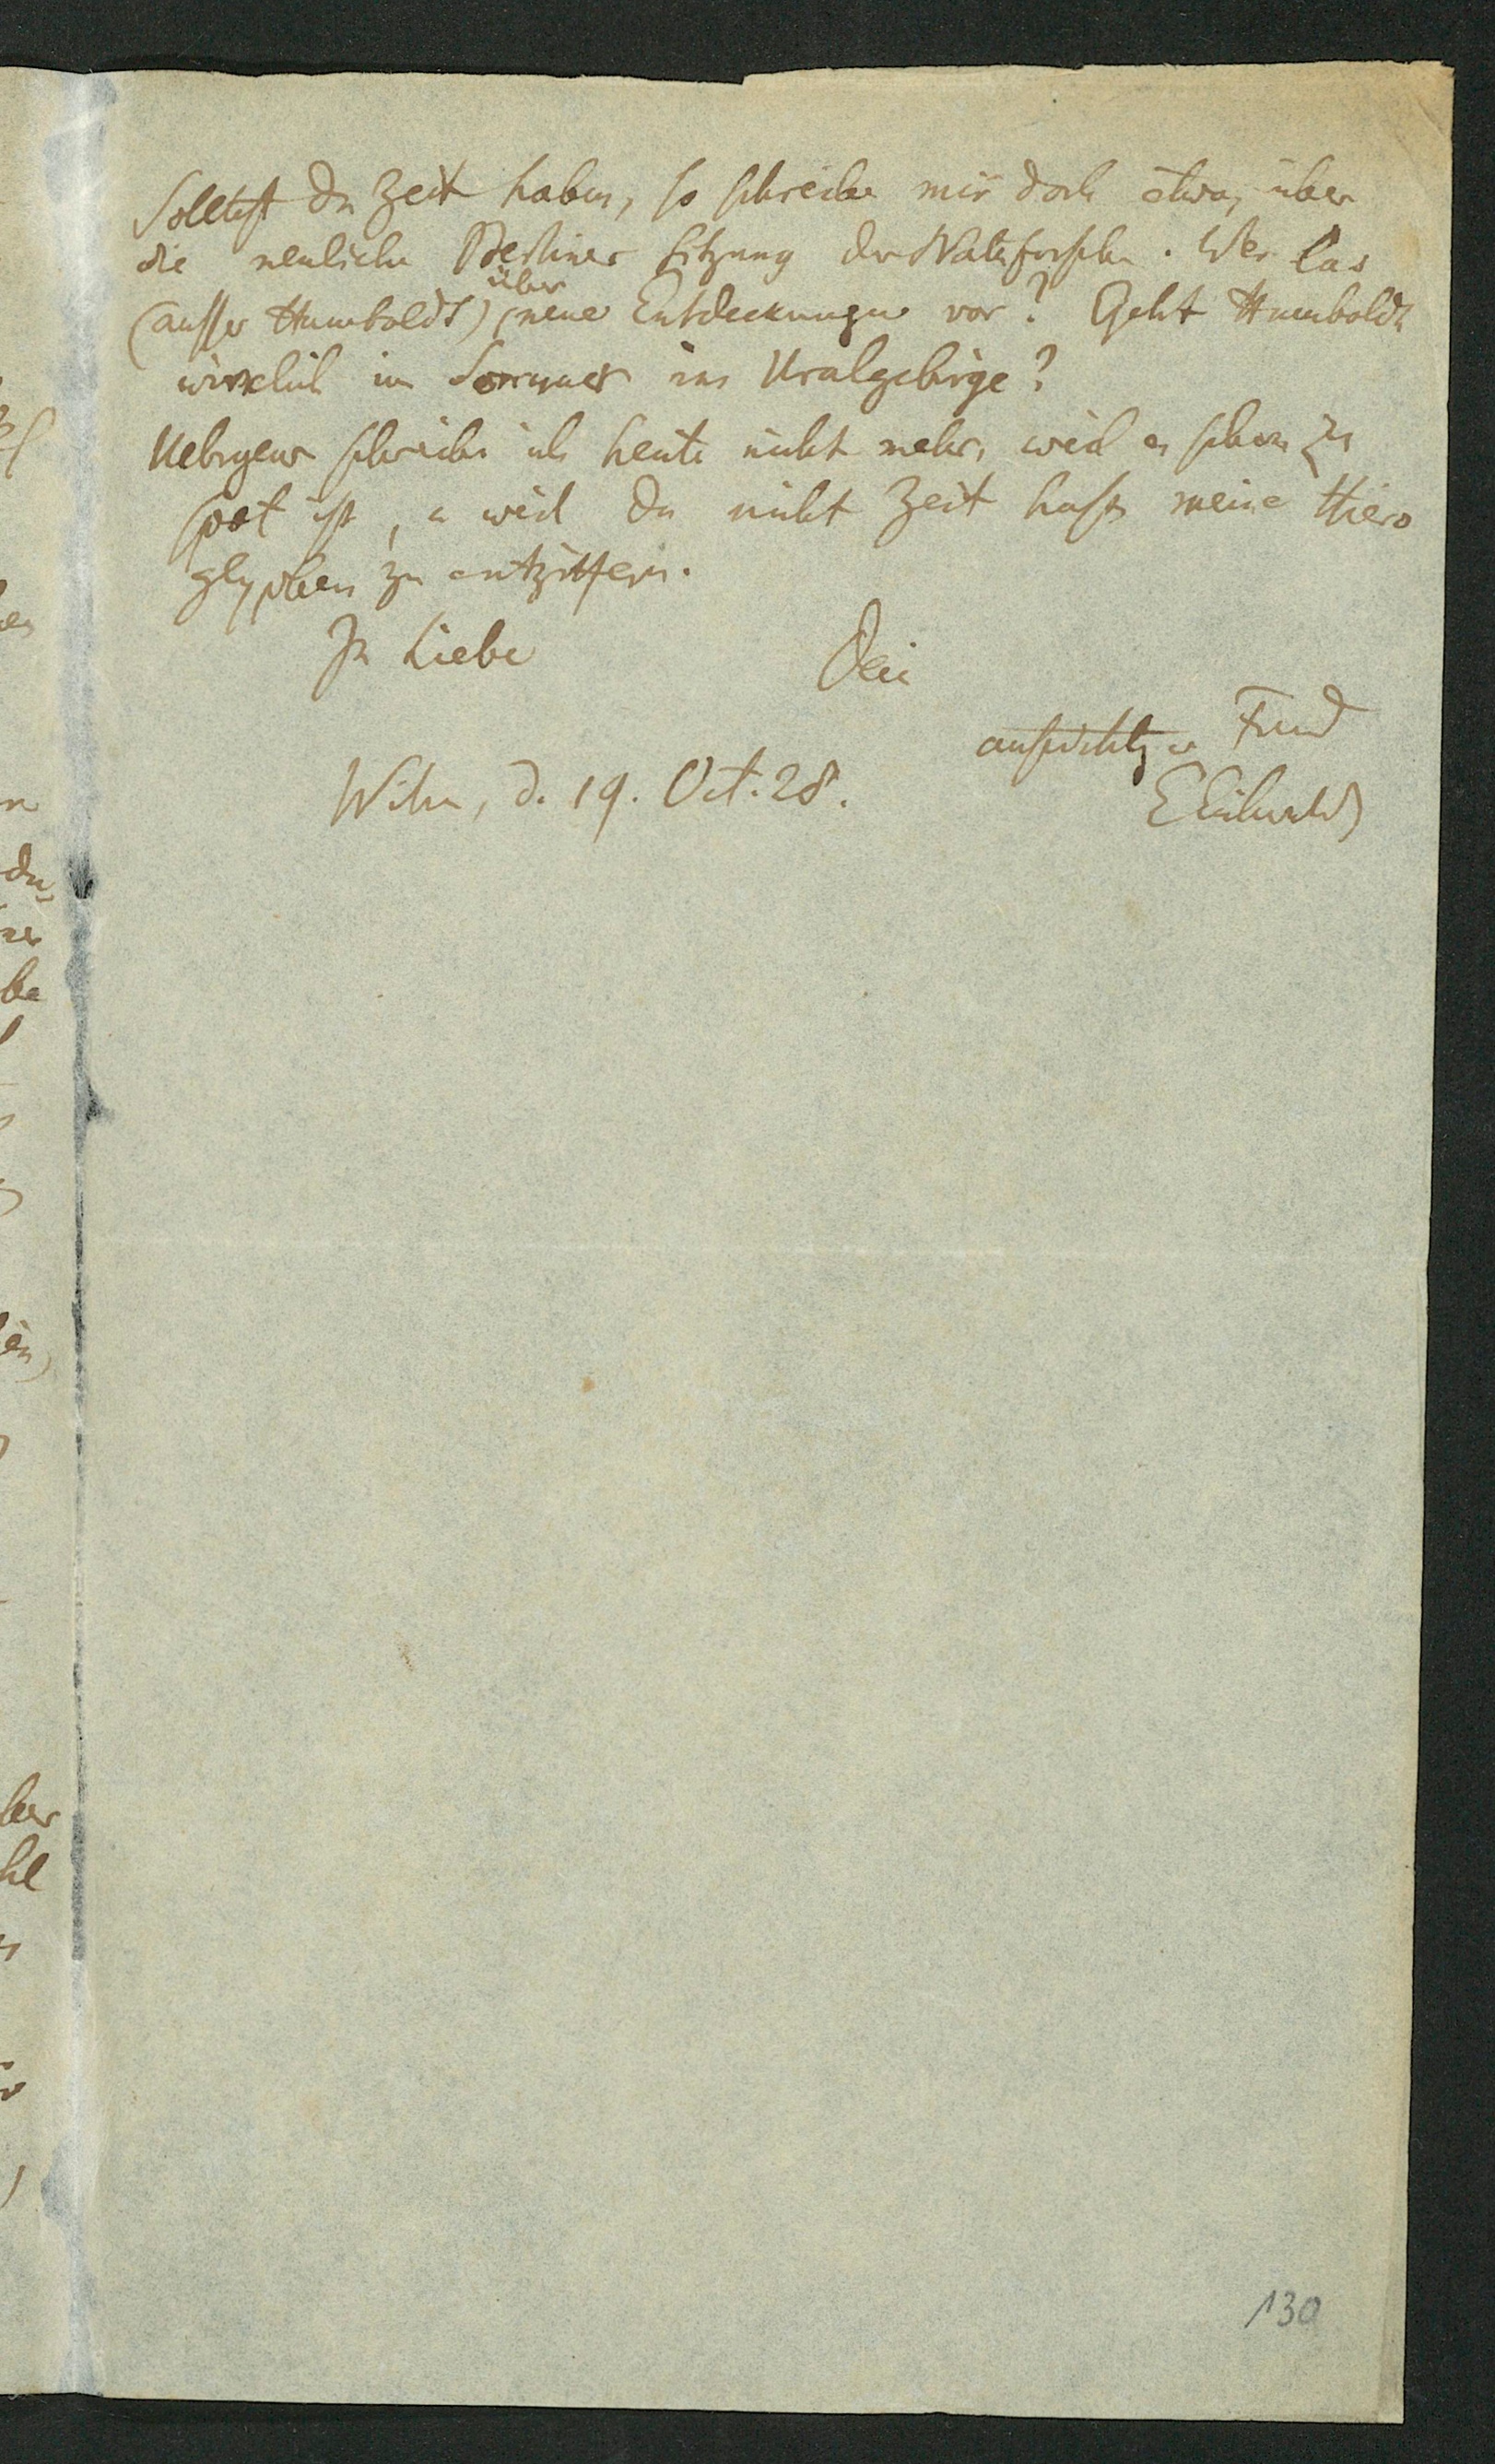 Solltest du Zeit haben, so schreibe mir doch etwas über
die neuliche Berliner Sitzung der Naturforscher. Wer las
(ausser Humboldt) über neue Entdeckungen vor? Geht Humboldt
wirklich im Sommer ins Uralgebirge?
Uebrigens schreibe ich heute nicht mehr, weil es schon zu
spat ist, u weil du nicht Zeit hast meine Hiero
glyphen zu entziffern.
In Liebe Dein
aufrichtiger Freund
Wilna, d. 19. Oct. 28.
E Eichwald
130